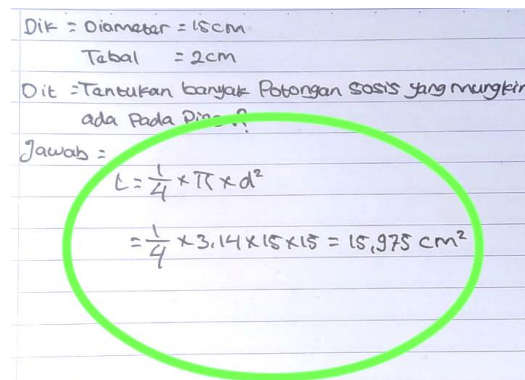 Dik = Diameter = 15cm
Tebal = 2cm
Dit = Tentukan banyak Potongan sosis yang mungkin
ada Pada
Jawab =
L = 1/4 × π × d²
= 1/4 × 3,14 × 15 × 15 = 15,975 cm²